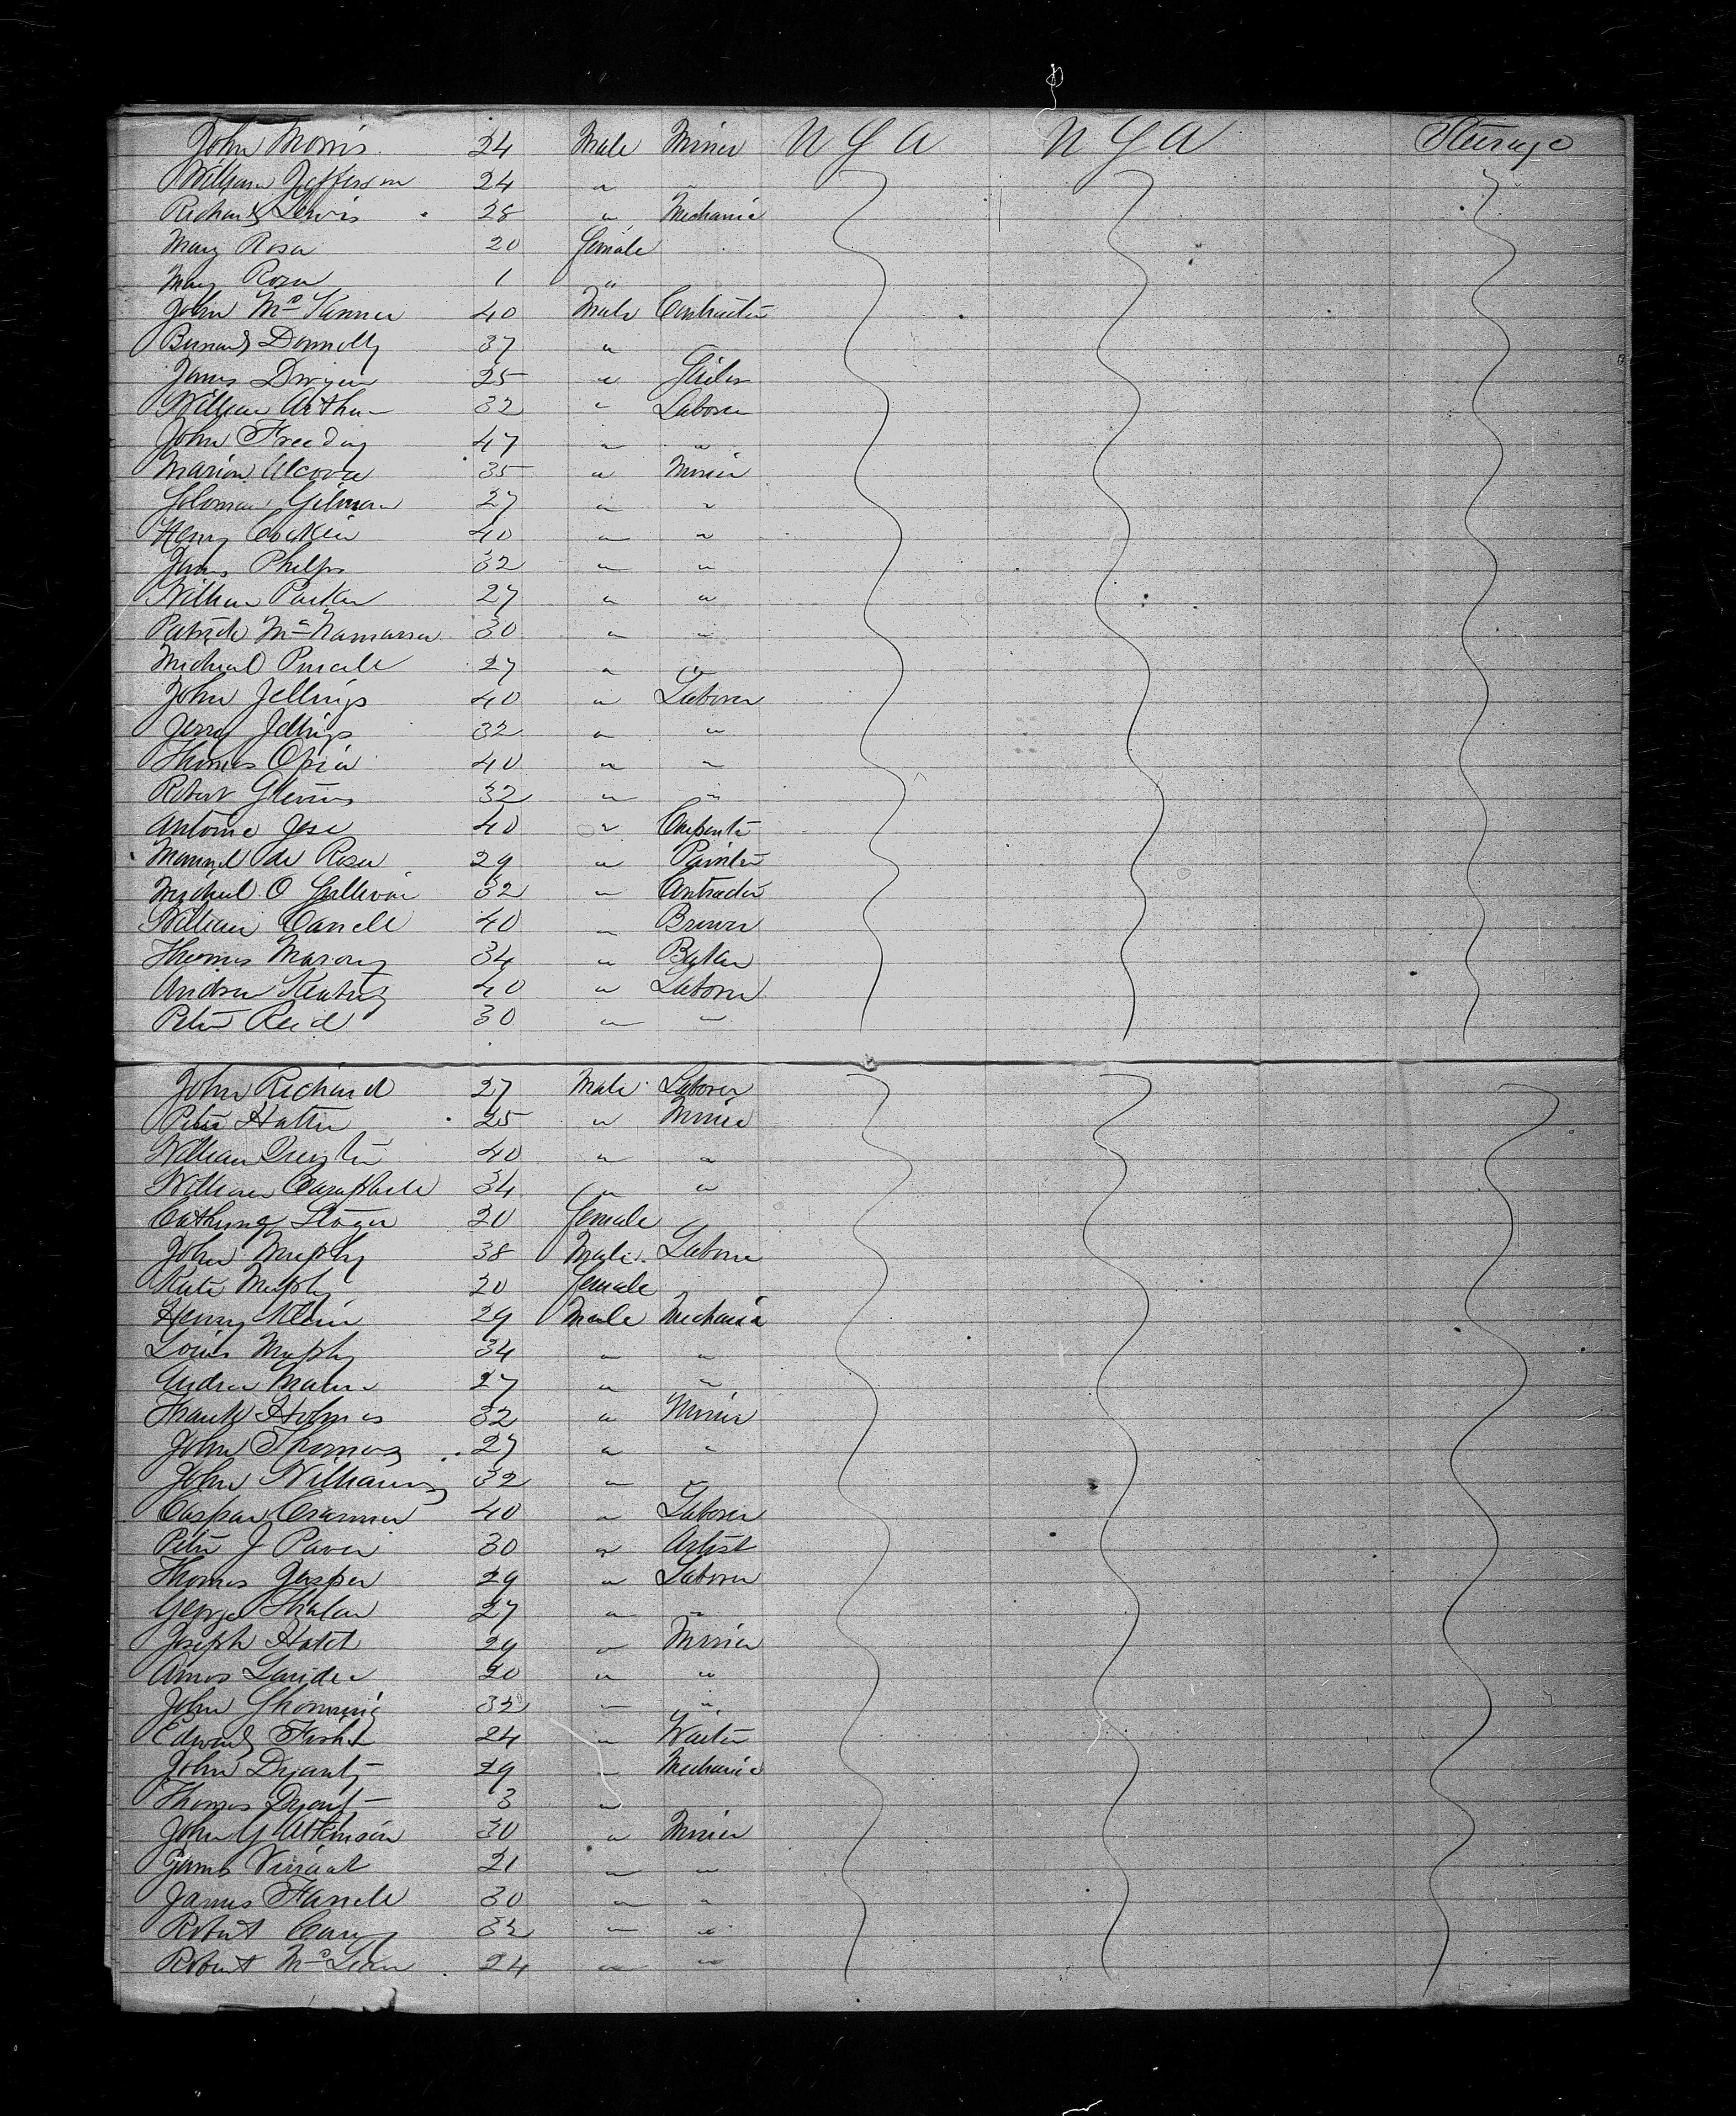 John Morris 24 Male Miner U S A U S A Steerage
William Jefferson 24 " "
Richard Lewis 28 " Mechanic
Mary Rosa 20 Female
Mary Rosa 1 "
John McKenner 40 Male Contractor
Bernard Donnolly 37 "
James Dwyer 25 "
William Arthur 32 " Laborer
John Freeday 47 " "
Marion 35 " Miner
Soloman Gilman 27 " "
Henry 40 " "
James Phelps 32 " "
William Parker 27 " "
Patrick McNamarra 30 " "
Michael 27 " "
John Jellings 40 " Laborer
Jerry Jellings 32 " "
Thomas 40 " "
Robert 32 " "
Antoine Jese 40 " Carpenter
Manuel de Rosa 29 " Painter
Michael O Sullivan 32 " Contractor
William Carrell 40 " Brewer
Thomas Marony 34 " Baker
Andrew Keating 40 " Laborer
Peter Reid 30 " "
John Richard 27 Male Laborer
Peter Hatter 25 " Miner
William 40 " "
William Campbell 34 " "
Female 20
John Murphy 38 Male Laborer
Kate Murphy 20 Female
Henry Klein 29 Male Mechanic
Louis Murphy 34 " "
Andrew 27 " "
Frank Holmes 32 " Miner
John Thomas 27 " "
John Williams 32 " "
Caspar Cramer 40 " Laborer
Peter J 30 " Artist
Thomas Jasper 29 " Laborer
George 27 " "
Joseph Hatch 29 " Miner
Amos 20 " "
John 32 " "
Edward Fisher 24 " Waiter
John 29 " Mechanic
Thomas 3 "
John G Atkinson 30 " Miner
James Vincent 21 " "
James Farrell 30 " "
Robert Cary 32 " "
Robert McLean 24 " "